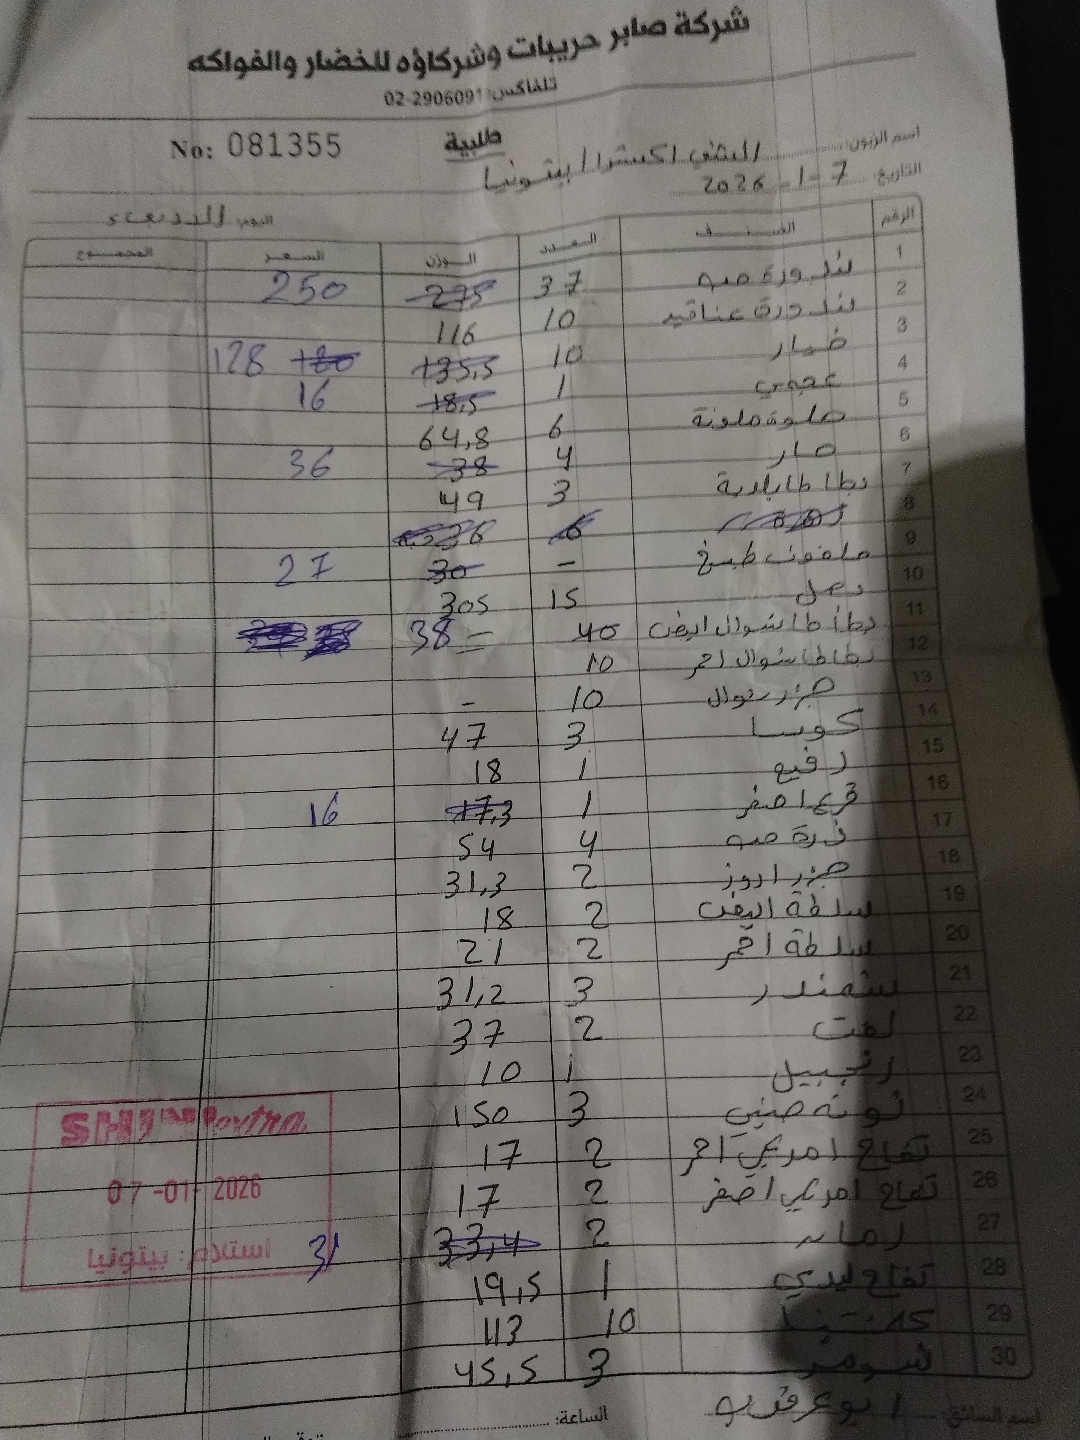 شركة صابر حريبات وشركاؤه للخضار والفواكه
تلفاكس: 02-2906091
No: 081355
طلبية
اسم الزبون: الشني اكسترا / بيتونيا
التاريخ: 7-1-2026
اليوم: الاربعاء
الرقم الصنف العدد الوزن السعر المجموع
1 بندورة حبه 37 275 250
2 بندورة عناقيد 10 116
3 خيار 10 135,5 180 128
4 عجمي 1 18,5 16
5 حلوة ملونة 6 64,8
6 حار 4 38 36
7 بطاطا بلدية 3 49
8 6 36
9 ملفوف طبخ - 30 27
10 بصل 15 305
11 بطاطا شوال ابيض 40 38
12 بطاطا شوال احمر 10
13 جزر شوال 10 -
14 كوسا 3 47
15 رفيع 1 18
16 قرع اصفر 1 17,3 16
17 ذرة حبه 4 54
18 جزر اروز 2 31,3
19 سلطة ابيض 2 18
20 سلطة احمر 2 21
21 شمندر 3 31,2
22 لفت 2 37
23 زنجبيل 1 10
24 ثومه صيني 3 150
25 تفاح امريكي احمر 2 17
26 تفاح امريكي اصفر 2 17
27 رمان 2 33,4 31
28 تفاح ليدي 1 19,5
29 كلمنتينا 10 113
30 شومر 3 45,5
SHINI extra
07-01-2026
استلام: بيتونيا
اسم السائق:
الساعة: